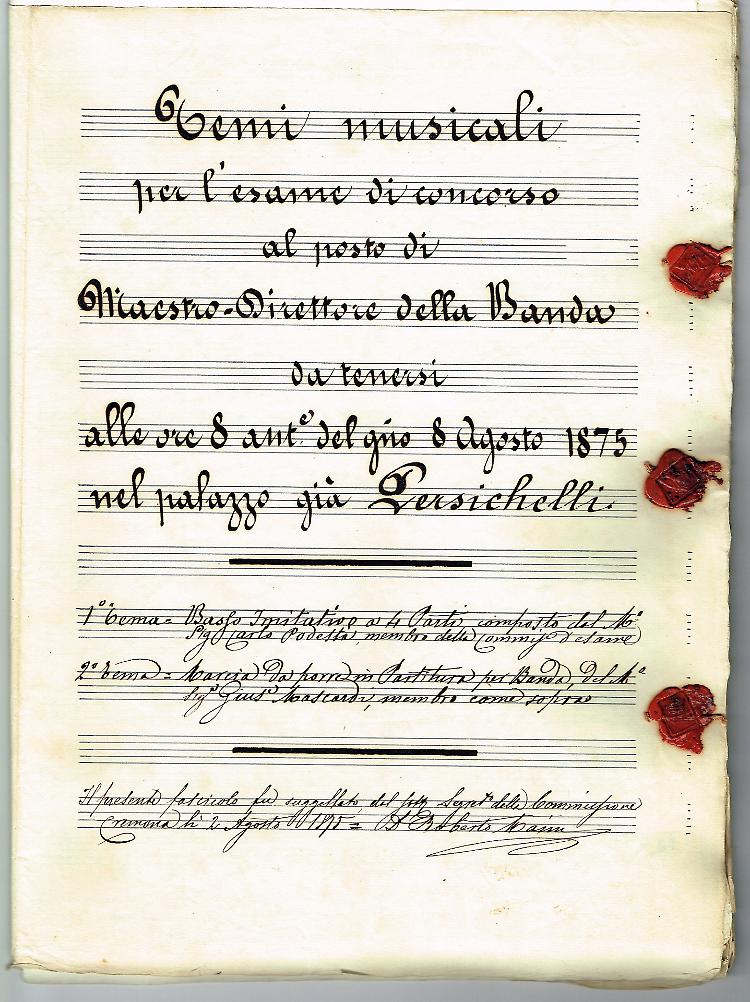 Temi musicali
per l'esame di concorso
al posto di
Maestro-Direttore della Banda
da tenersi
alle ore 8 ant.e del gno 8 Agosto 1875
nel palazzo già Persichelli.
1º Tema = Basso Imitativo a 4 Parti, composto dal Mº
Sig. Carlo Podestà, membro della Commisse d'esame
2º Tema = Marcia da porre in Partitura per Banda, del Mº
Sigr Giuse Mascardi, membro come sopra
Il presente fascicolo fu suggellato dal Segreto della Commissione
Cremona li 2 Agosto 1875 =